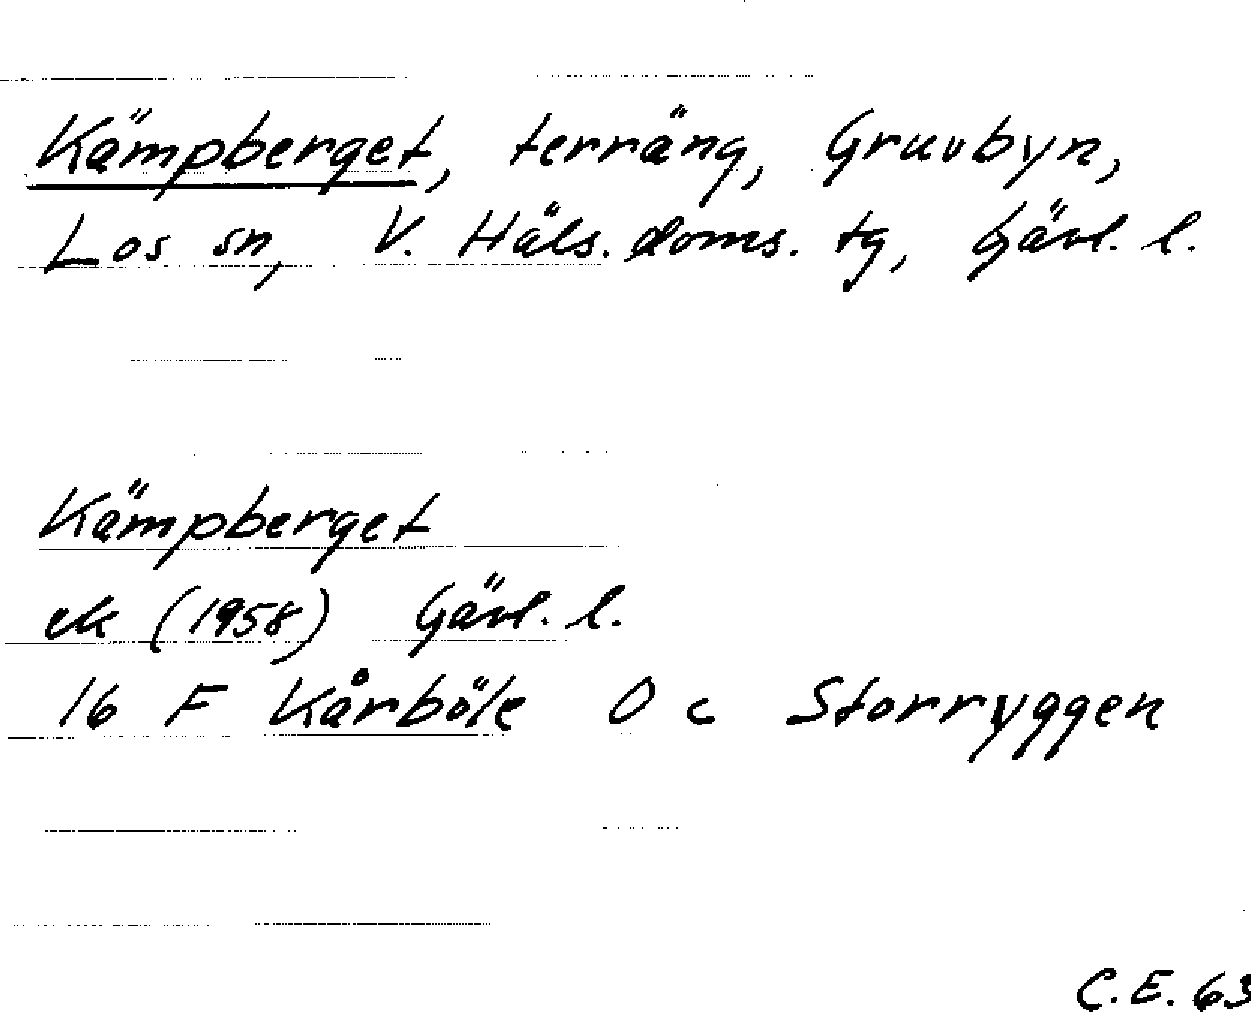 Kämpberget, terräng, Gruvbyn,
Los sn, V. Häls. doms. tg, Gävl. l.
Kämpberget
ek (1958) Gävl. l.
16 F Kårböle O c Storryggen
C.E. 63